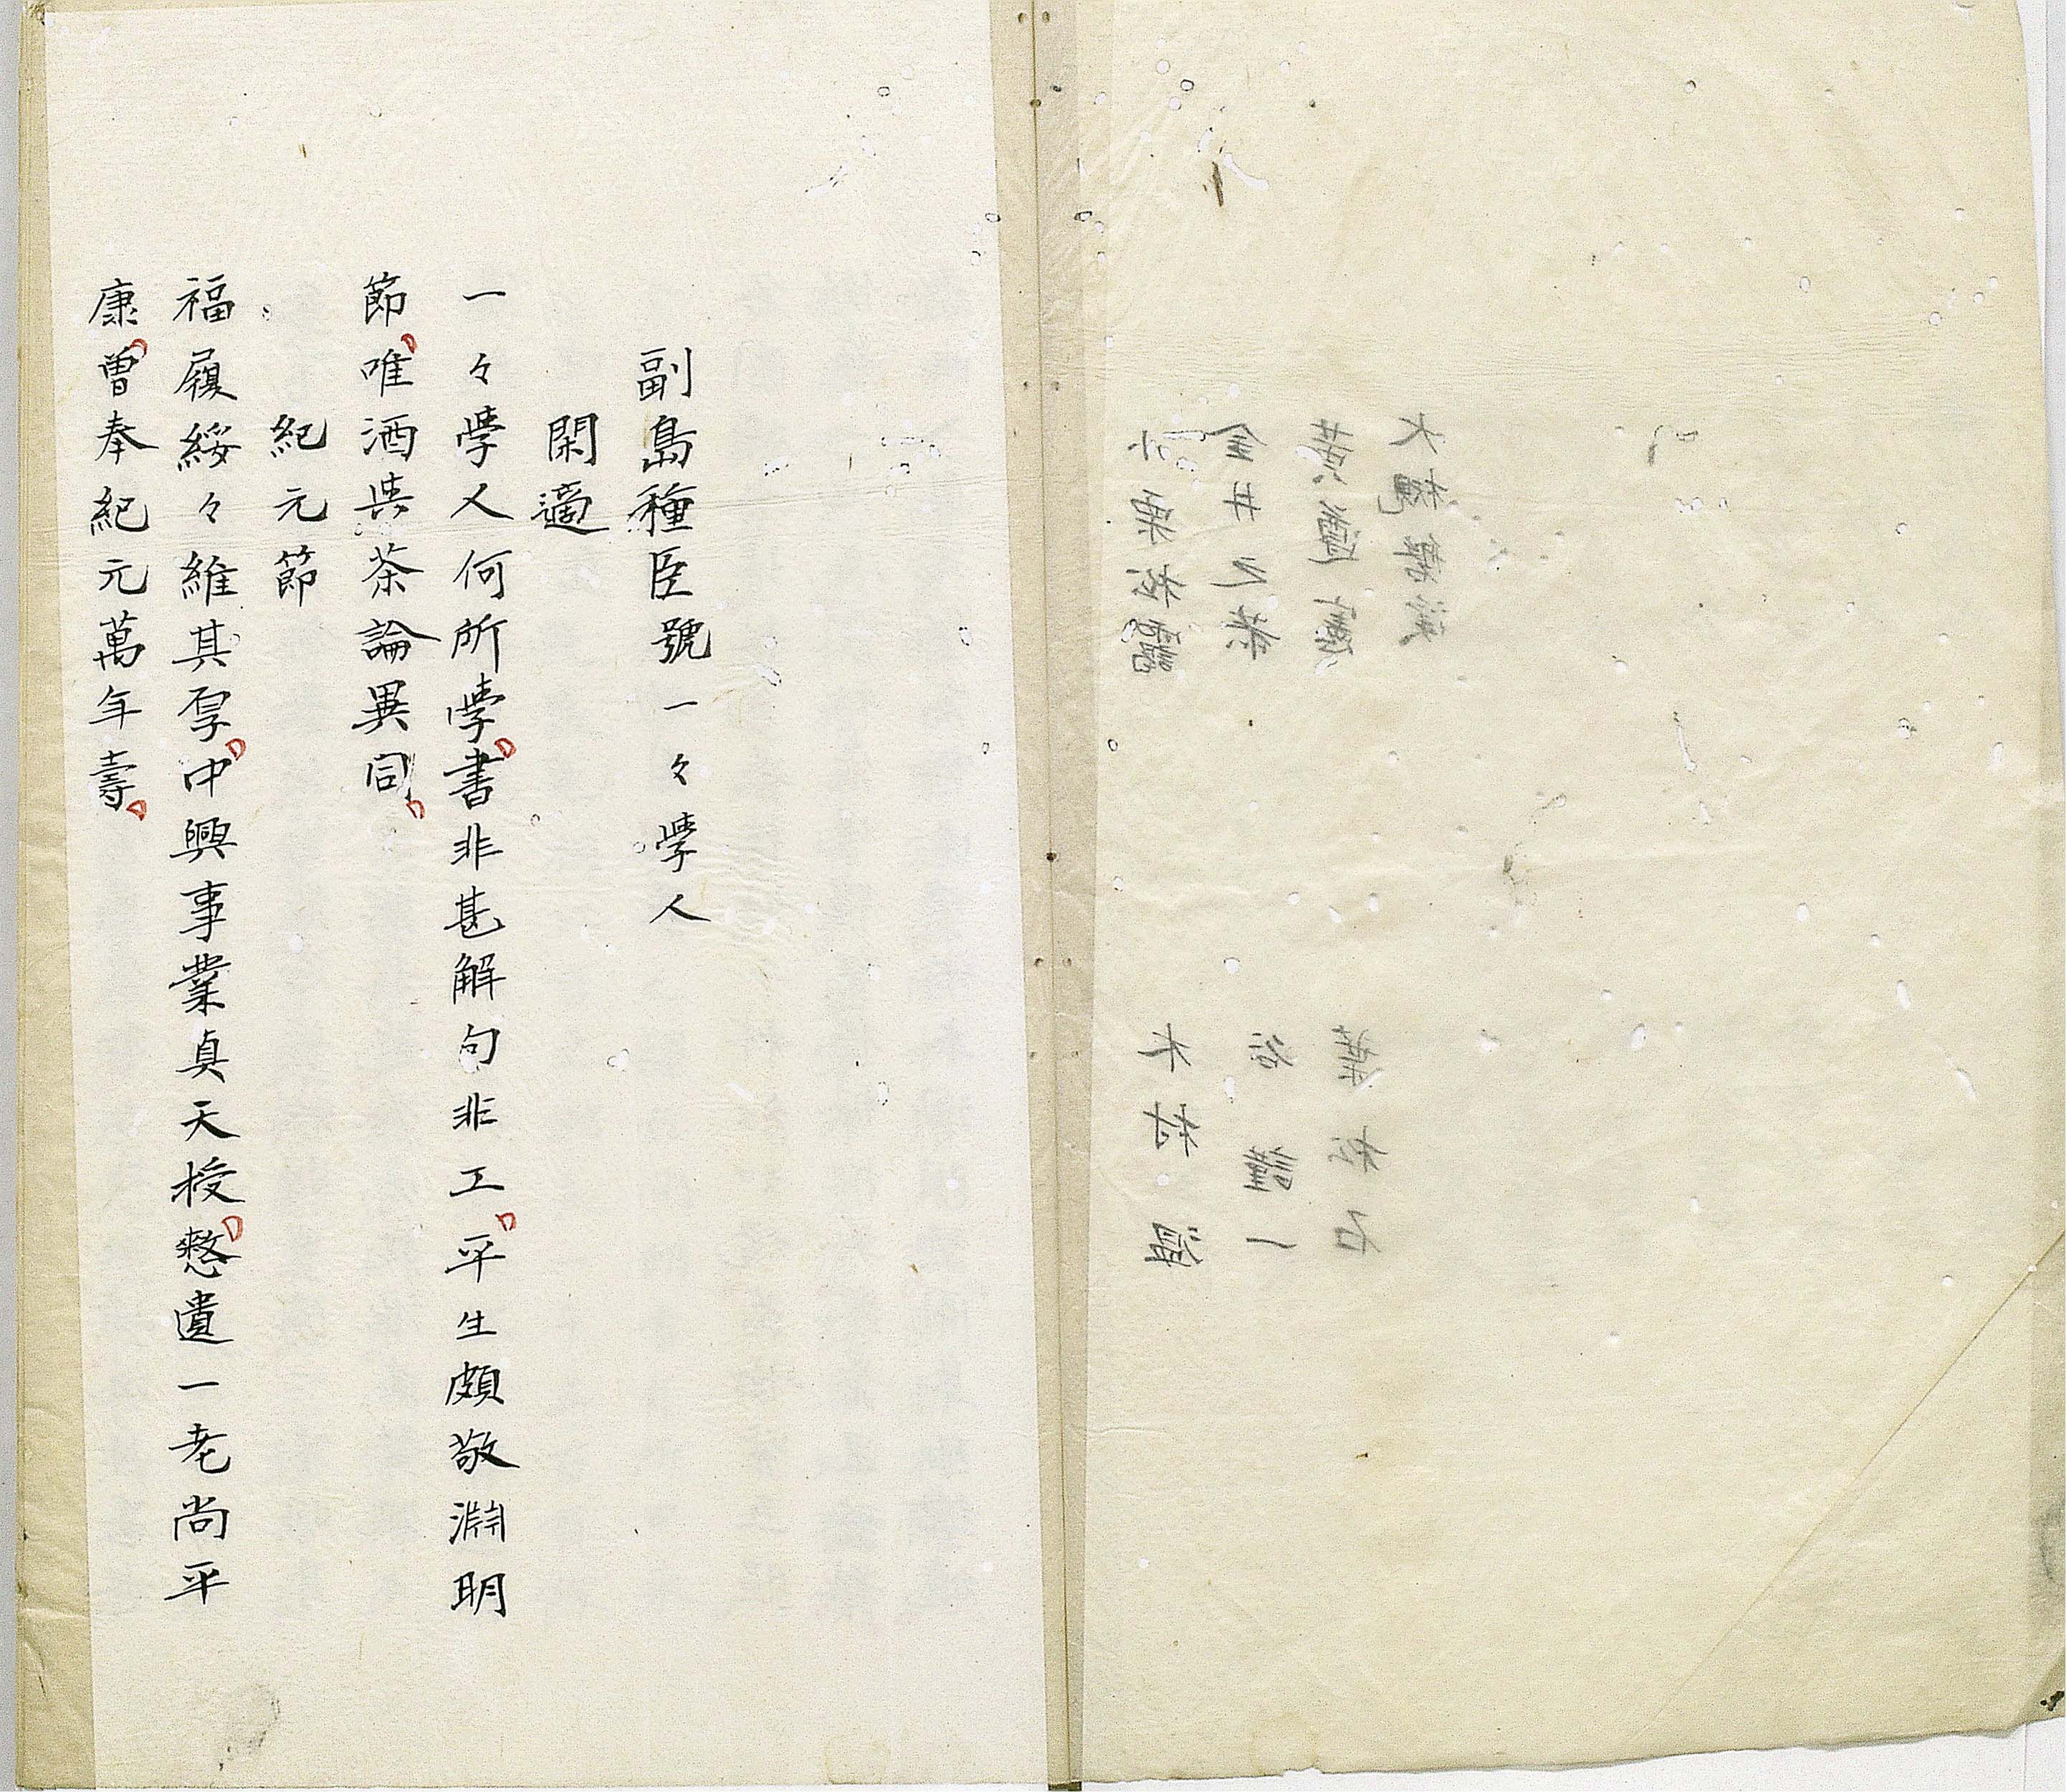 大槻磐溪
黄遵憲
葉松石
金井之恭
谷謹一
小栗松靄
木村温
副島種臣號一々學人
閑適
一々學人何所學書非甚解句非工平生頗敬淵明
節唯酒與茶論異同
紀元節
福履綏々維其厚中興事業真天授憖遺一老尚平
康曽奉紀元萬年壽